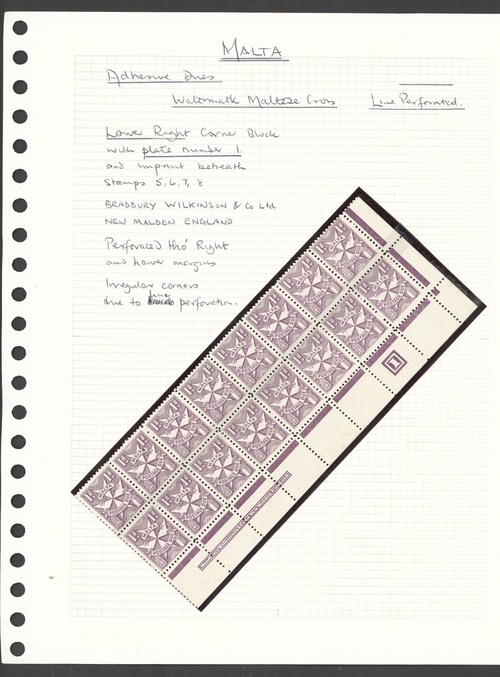 MALTA
Adhesive Dues
Watermark Maltese Cross Line Perforated.
Lower Right Corner Block
with plate number 1.
and imprint beneath
Stamps 5, 6, 7, 8
BRADBURY WILKINSON & Co Ltd
NEW MALDEN ENGLAND
Perforated thro' Right
and Lower margins
Irregular corners
due to line perforation.
1